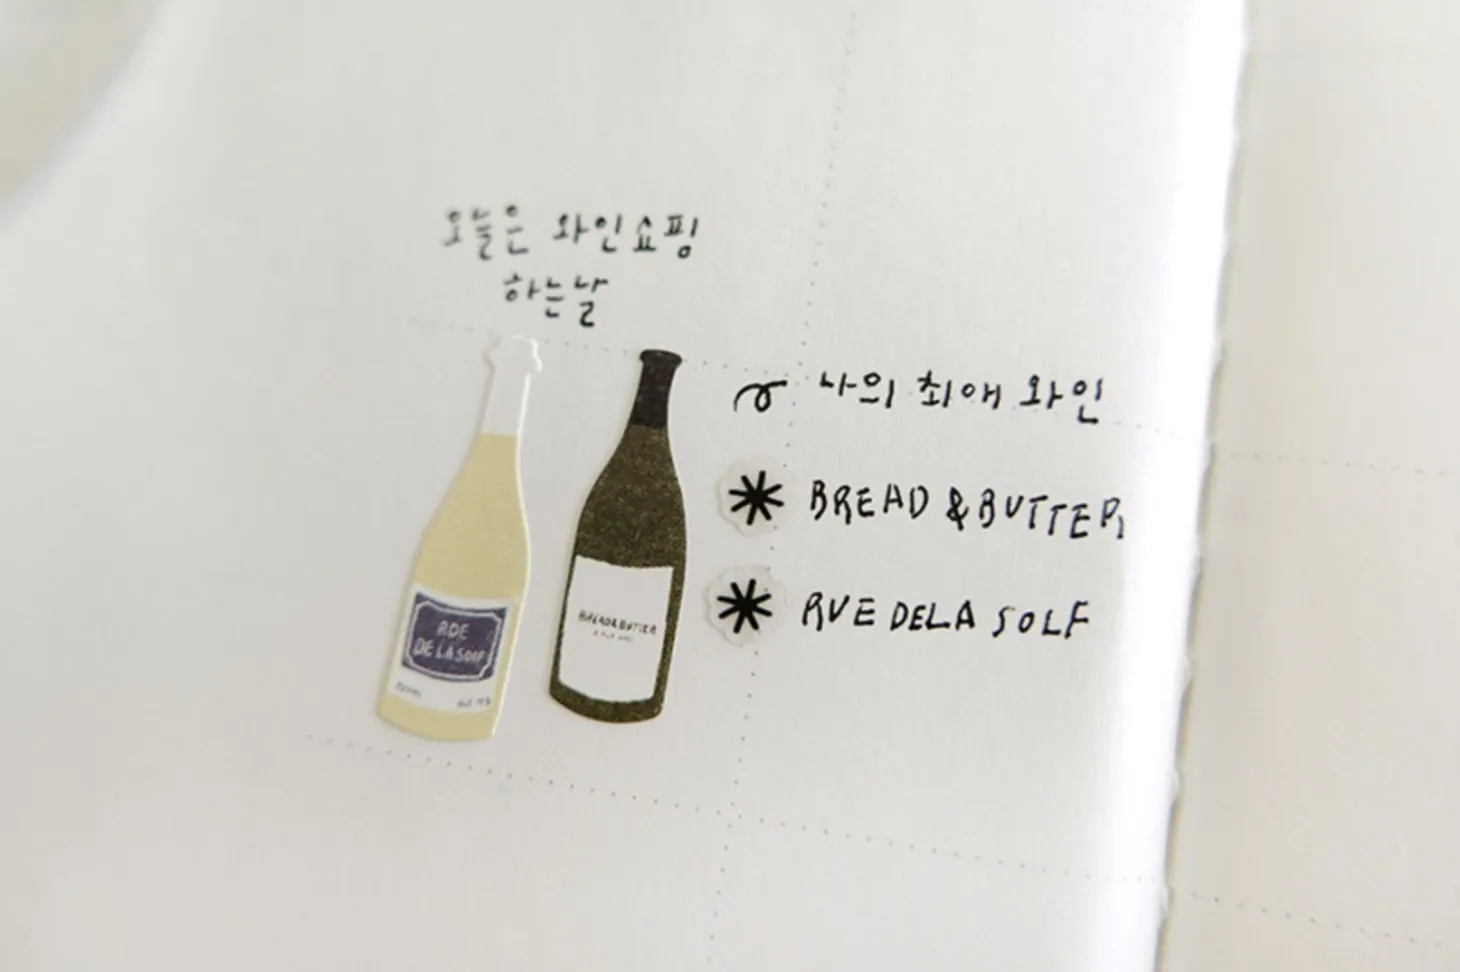 오늘은 와인쇼핑
하는날
나의 최애 와인
BREAD & BUTTER
RUE DE LA SOLF
RDE
DE LA SOIF
BREAD&BUTTER